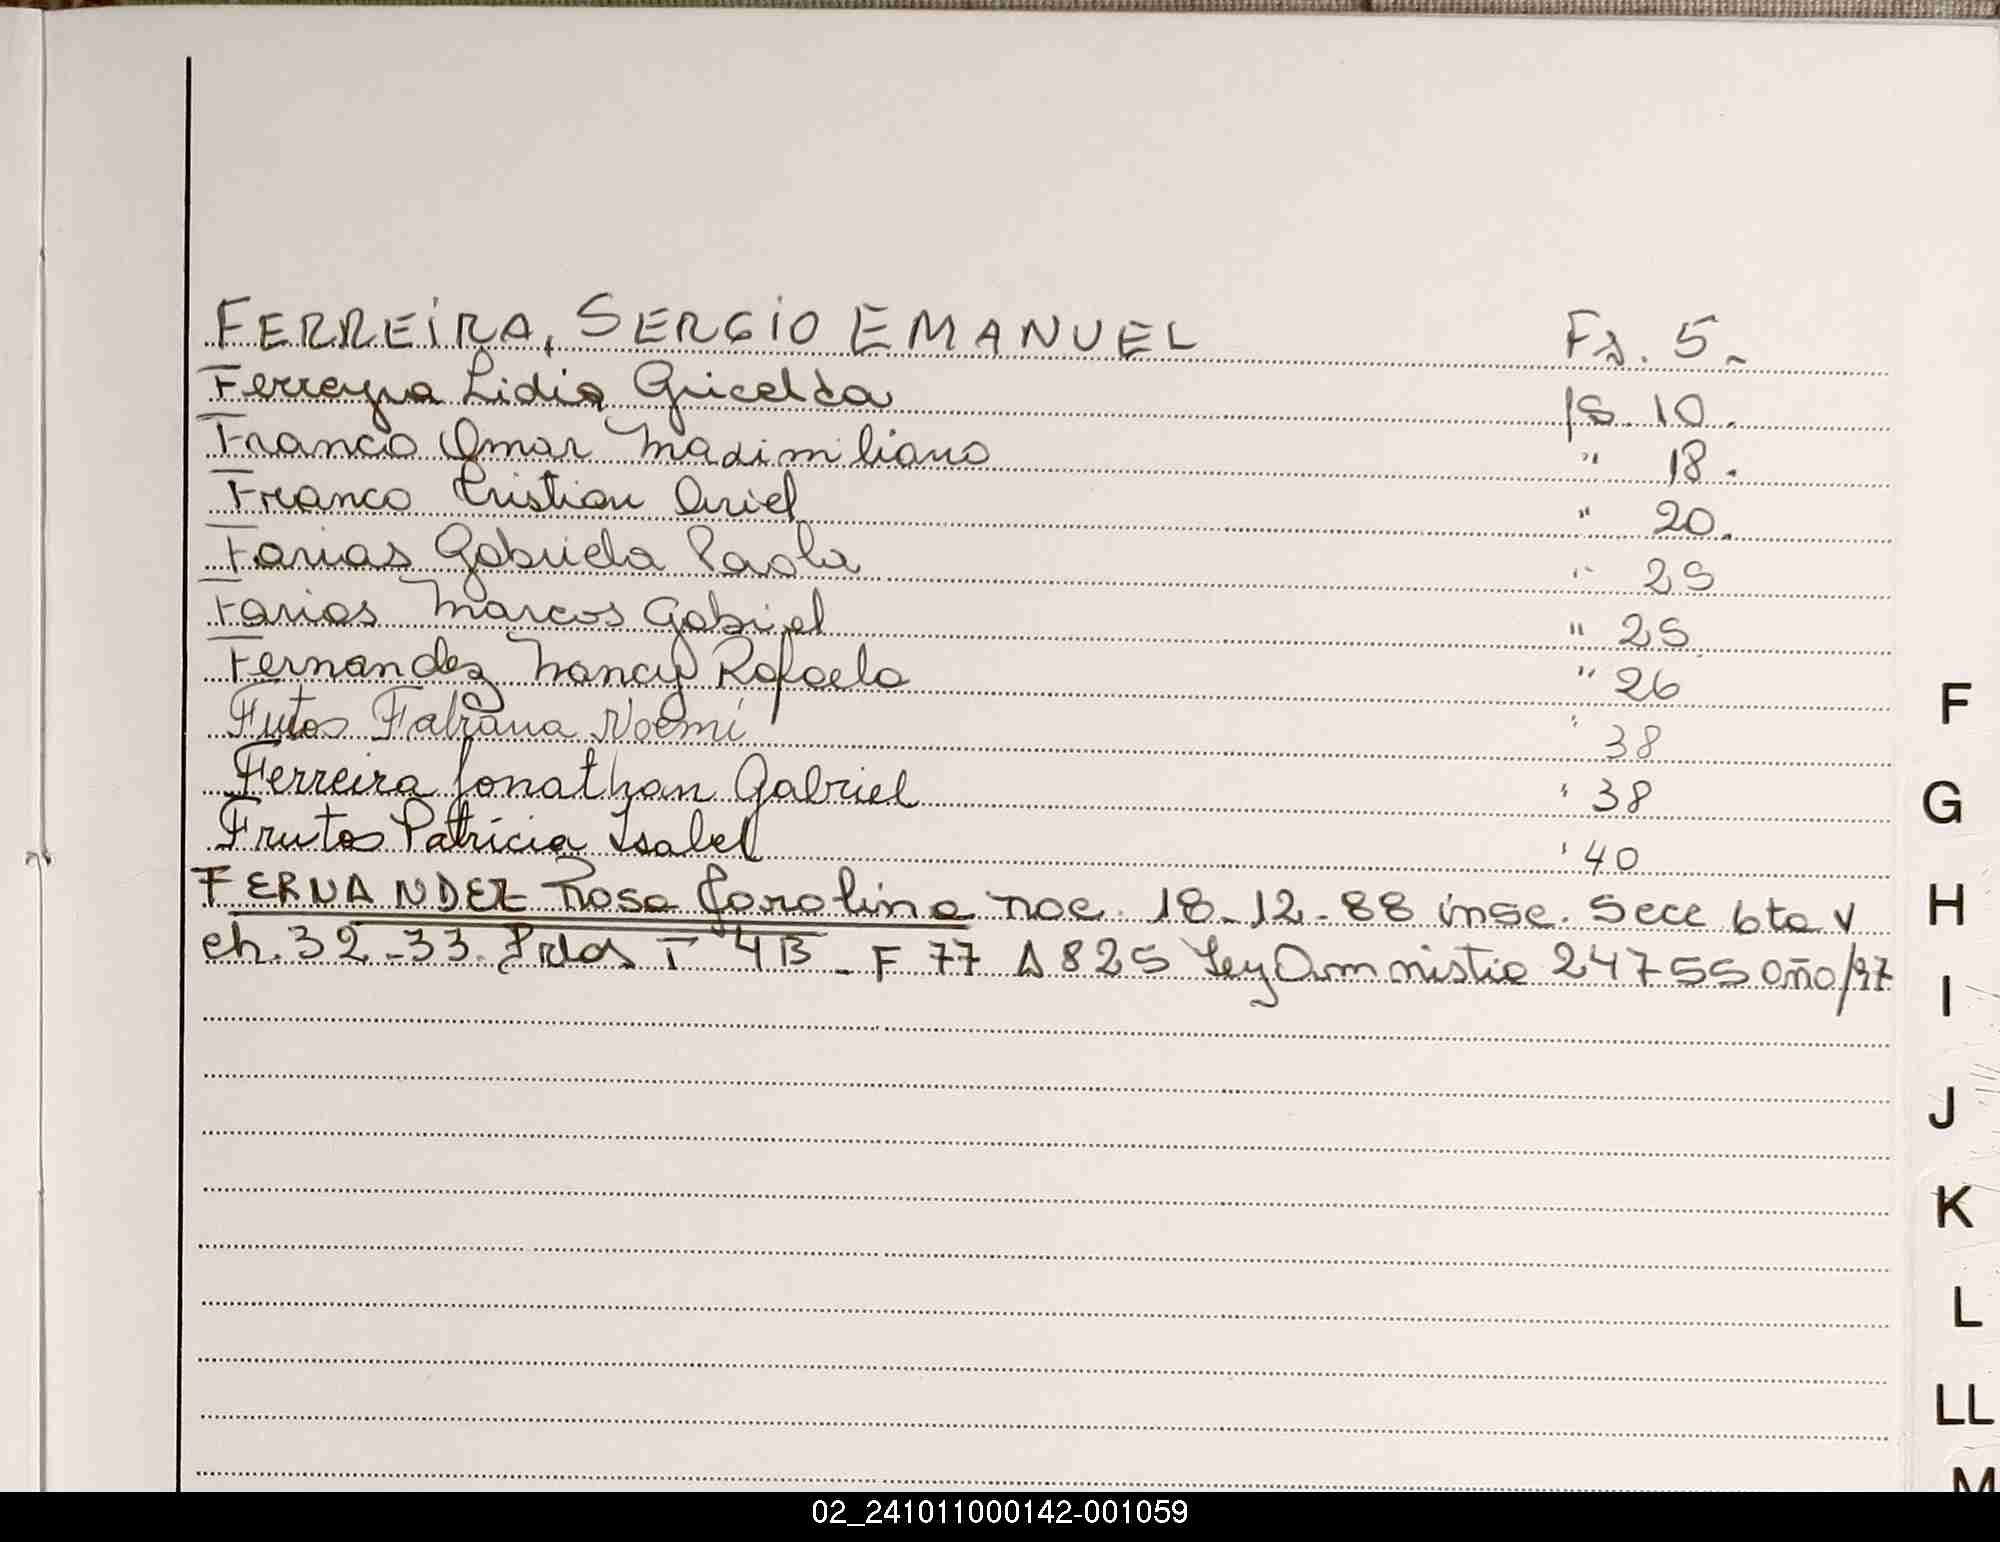 FERREIRA, SERGIO EMANUEL Fs. 5.-
Ferreyra Lidia Gricelda fs. 10.
Franco Omar Maximiliano " 18.
Franco Cristian Ariel " 20.
Farias Gabriela Paola " 25
Farias Marcos Gabriel " 25
Fernandez Nancy Rafaela " 26
Frutos Fabiana Noemí " 38
Ferreira Jonathan Gabriel " 38
Frutos Patricia Isabel " 40
FERNANDEZ Rosa Carolina nac. 18-12-88 insc. Secc 6ta V
ch. 32-33 Pdas T 4B - F 77 A 825 Ley Amnistia 24755 año/97
F
G
H
I
J
K
L
LL
M
02_241011000142-001059